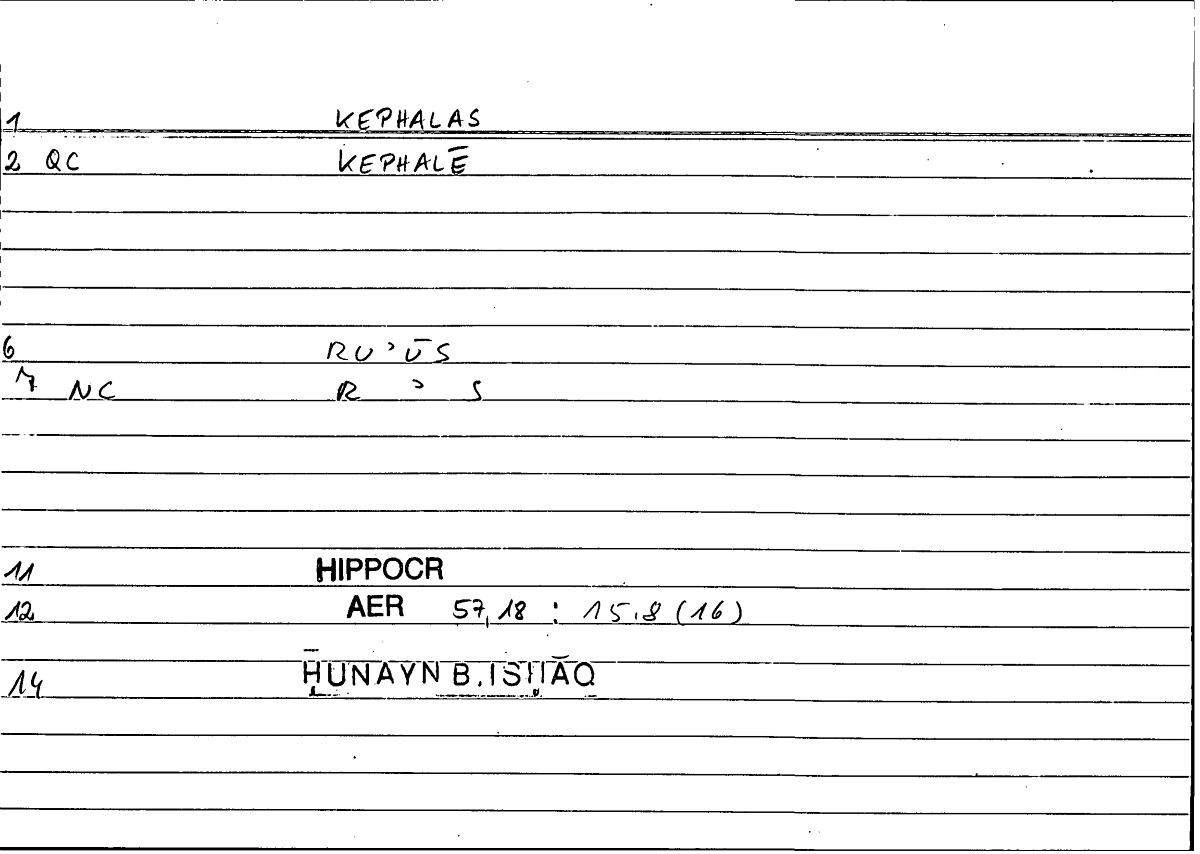 1 KEPHALAS
2 QC KEPHALĒ
6 RUʾŪS
7 NC R ʾ S
11 HIPPOCR
12 AER 57,18 : 15.8 (16)
14 ḤUNAYN B. ISḤĀQ